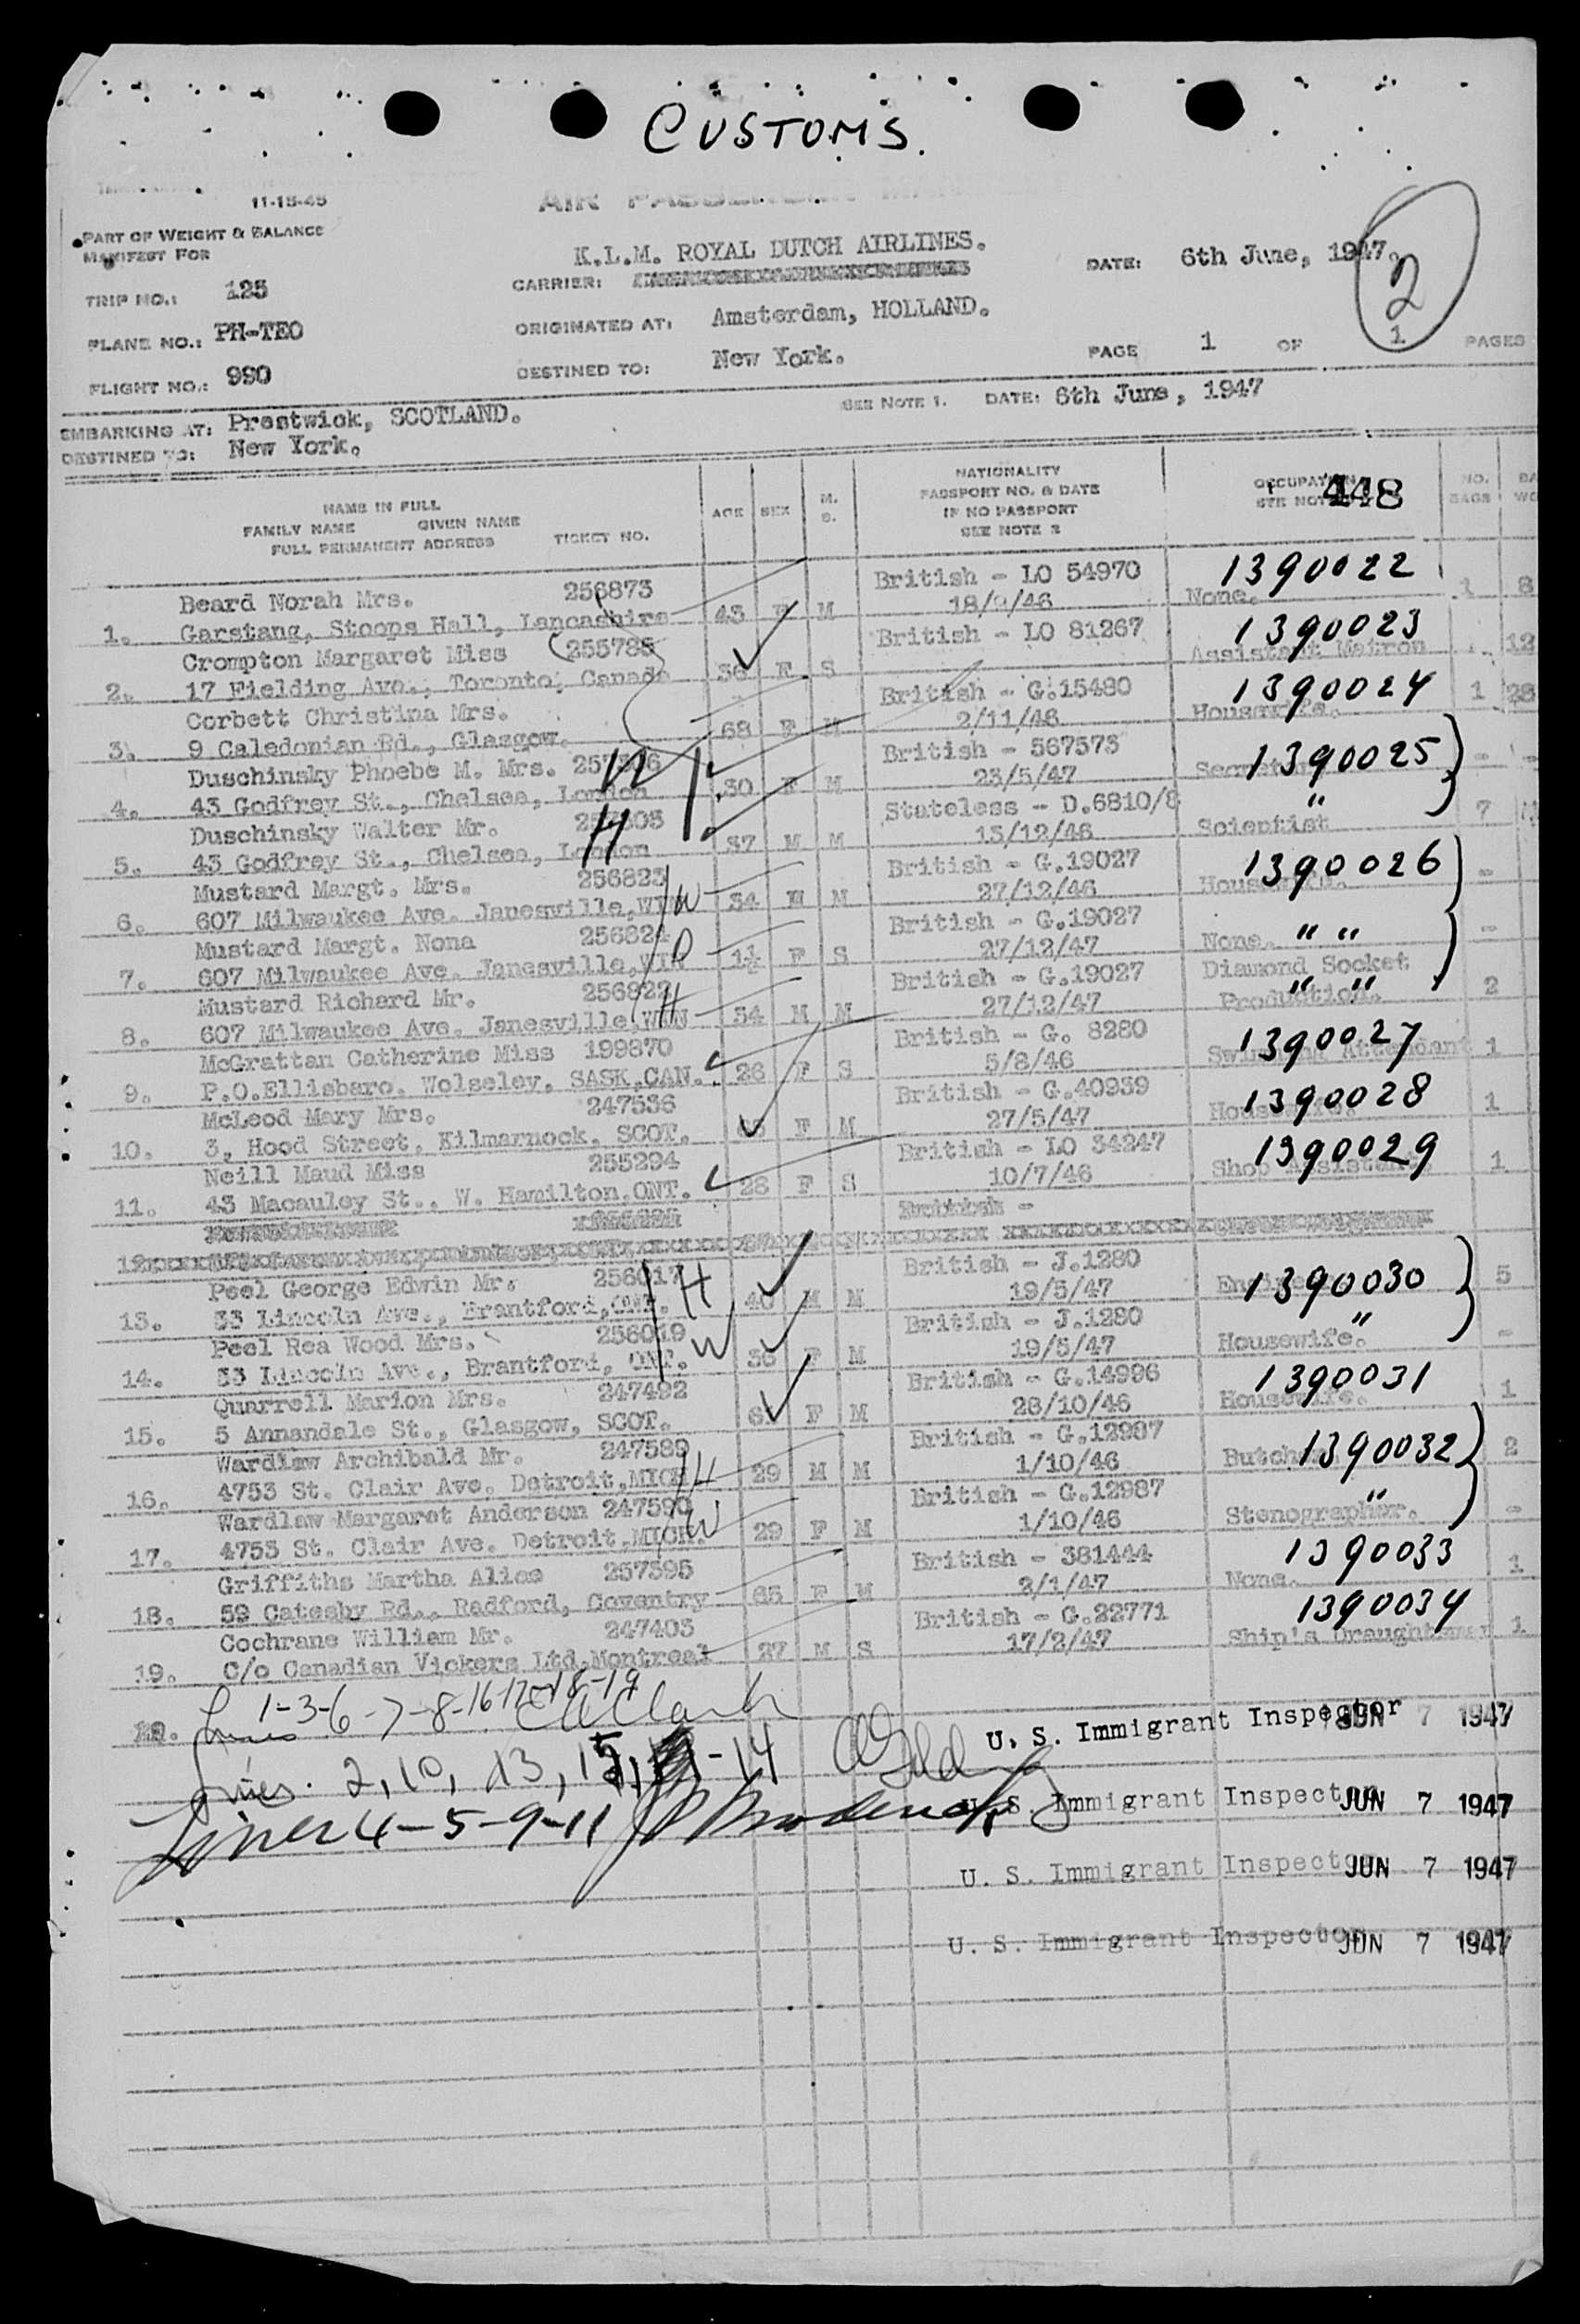 CUSTOMS.
11-15-45
AIR PASSENGER
PART OF WEIGHT & BALANCE
MANIFEST FOR
K.L.M. ROYAL DUTCH AIRLINES.
CARRIER:
DATE: 6th June, 1947.
2
TRIP NO.: 125
ORIGINATED AT: Amsterdam, HOLLAND.
PLANE NO.: PH-TEO
DESTINED TO: New York.
PAGE 1 OF 1 PAGES
FLIGHT NO.: 990
SEE NOTE 1. DATE: 6th June, 1947
EMBARKING AT: Prestwick, SCOTLAND.
DESTINED TO: New York.
NAME IN FULL
FAMILY NAME GIVEN NAME
FULL PERMANENT ADDRESS TICKET NO.
AGE SEX M. S.
NATIONALITY
PASSPORT NO. & DATE
IF NO PASSPORT
SEE NOTE 2
OCCUPATION
SEE NOTE
448
NO. BAGS
Beard Norah Mrs. 256873 British - LO 54970 1390022
1. Garstang, Stoops Hall, Lancashire 43 F M None. 1 8
Crompton Margaret Miss British - LO 81267 1390023
2. 17 Fielding Ave., Toronto, Canada 36 F S Assistant Matron 12
Corbett Christina Mrs. British - G.15480 1390024
3. 9 Caledonian Rd., Glasgow. 68 F M 2/11/46 Housewife. 1 28
Duschinsky Phoebe M. Mrs. W British - 567573 1390025
4. 43 Godfrey St., Chelsea, London 30 F M 23/5/47 -
Duschinsky Walter Mr. H Stateless - D.6810/8 "
5. 43 Godfrey St., Chelsea, London 37 M M 13/12/46 Scientist 7
Mustard Margt. Mrs. 256823 W British - G.19027 1390026
6. 607 Milwaukee Ave. Janesville, 34 F M 27/12/46 -
Mustard Margt. Nona 256824 D British - G.19027
7. 607 Milwaukee Ave. Janesville, 1½ F S 27/12/47 None. " " -
Mustard Richard Mr. 256822 H British - G.19027 Diamond Socket
8. 607 Milwaukee Ave. Janesville, 34 M M 27/12/47 Production. " " 2
McGrattan Catherine Miss 199870 British - G. 8280 1390027
9. P.O.Ellisboro. Wolseley. SASK.CAN. 26 F S 5/8/46 Attendant 1
McLeod Mary Mrs. 247536 British - G.40939 1390028
10. 3, Hood Street. Kilmarnock. SCOT. F M 27/5/47 1
Neill Maud Miss 255294 British - LO 34247 1390029
11. 43 Macauley St.. W. Hamilton.ONT. 28 F S 10/7/46 Shop Assistant. 1
British -
12
Peel George Edwin Mr. 256017 H British - J.1280 1390030
13. 33 Lincoln Ave., Brantford,ONT. 40 M M 19/5/47 5
Peel Rea Wood Mrs. 256019 W British - J.1280
14. 33 Lincoln Ave., Brantford, ONT. 36 F M 19/5/47 Housewife. " -
Quarrell Marion Mrs. 247492 British - G.14996 1390031
15. 5 Annandale St., Glasgow, SCOT. F M 28/10/46 Housewife. 1
Wardlaw Archibald Mr. 247589 H British - G.12987 1390032
16. 4753 St. Clair Ave. Detroit,MICH 29 M M 1/10/46 2
Wardlaw Margaret Anderson 247590 W British - G.12987 "
17. 4753 St. Clair Ave. Detroit.MICH. 29 F M 1/10/46 Stenographer. -
Griffiths Martha Alice 257395 British - 381444 1390033
18. 59 Catesby Rd., Radford, Coventry 65 F M 2/1/47 None. 1
Cochrane William Mr. 247403 British - G.22771 1390034
19. C/o Canadian Vickers Ltd.Montreal 27 M S 17/2/47 Ship's Draughtsman 1
Lines 1-3-6-7-8-16-17-18-19 Clark U. S. Immigrant Inspector JUN 7 1947
Lines. 2, 10, 13, 15, -14
U. S. Immigrant Inspector JUN 7 1947
Lines 4-5-9-11
U. S. Immigrant Inspector JUN 7 1947
U. S. Immigrant Inspector JUN 7 1947